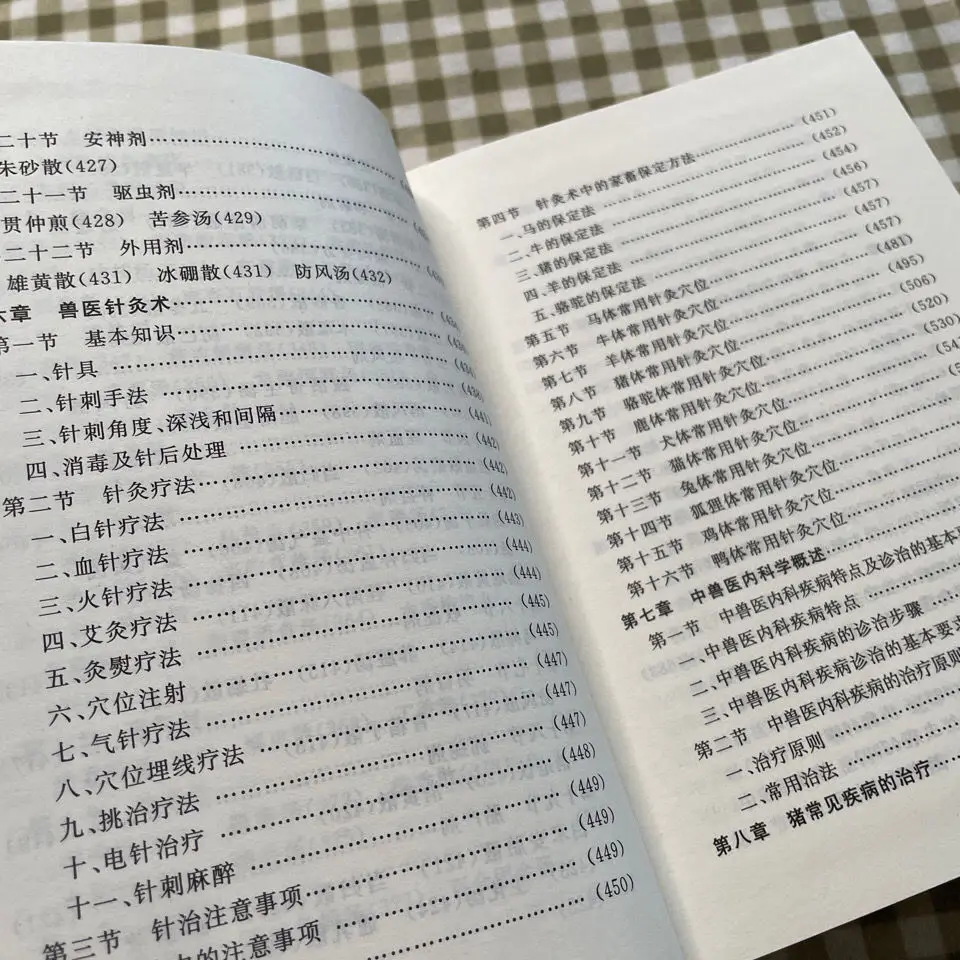 二十节 安神剂……………
朱砂散(427)
二十一节 驱虫剂……………
贯仲煎(428) 苦参汤(429)
二十二节 外用剂……………
雄黄散(431) 冰硼散(431) 防风汤(432)
六章 兽医针灸术……………
第一节 基本知识……………
一、针具……………(434)
二、针刺手法……………(438)
三、针刺角度、深浅和间隔……………(441)
四、消毒及针后处理……………(442)
第二节 针灸疗法……………(442)
一、白针疗法……………(442)
二、血针疗法……………(443)
三、火针疗法……………(444)
四、艾灸疗法……………(444)
五、灸熨疗法……………(445)
六、穴位注射……………(445)
七、气针疗法……………(447)
八、穴位埋线疗法……………(447)
九、挑治疗法……………(447)
十、电针治疗……………(448)
十一、针刺麻醉……………(449)
第三节 针治注意事项……………(449)
的注意事项……………(449)
(450)
第四节 针灸术中的家畜保定方法……………(451)
一、马的保定法……………(452)
二、牛的保定法……………(454)
三、猪的保定法……………(456)
四、羊的保定法……………
五、骆驼的保定法……………(457)
第五节 马体常用针灸穴位……………(457)
第六节 牛体常用针灸穴位……………(481)
第七节 羊体常用针灸穴位……………(495)
第八节 猪体常用针灸穴位……………(506)
第九节 骆驼体常用针灸穴位……………(520)
第十节 鹿体常用针灸穴位……………(530)
第十一节 犬体常用针灸穴位……………
第十二节 猫体常用针灸穴位……………
第十三节 兔体常用针灸穴位……………
第十四节 狐狸体常用针灸穴位……………
第十五节 鸡体常用针灸穴位……………
第十六节 鸭体常用针灸穴位……………
第七章 中兽医内科学概述……………
第一节 中兽医内科疾病特点及诊治的基本
一、中兽医内科疾病特点……………
二、中兽医内科疾病的诊治步骤……………
三、中兽医内科疾病诊治的基本要求
第二节 中兽医内科疾病的治疗原则
一、治疗原则……………
二、常用治法……………
第八章 猪常见疾病的治疗……………